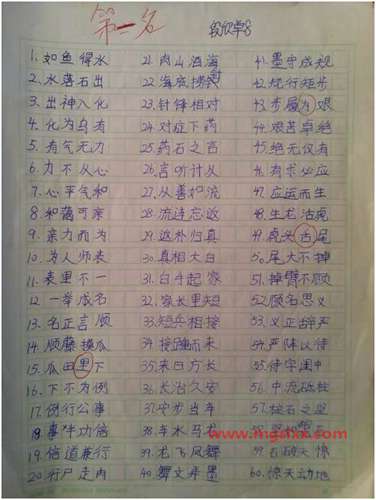 第一名
1. 如鱼得水
2. 水落石出
3. 出神入化
4. 化为乌有
5. 有气无力
6. 力不从心
7. 心平气和
8. 和蔼可亲
9. 亲力而为
10. 为人师表
11. 表里不一
12. 一举成名
13. 名正言顺
14. 顺藤摸瓜
15. 瓜田里下
16. 下不为例
17. 例行公事
18. 事半功倍
19. 倍道兼行
20. 行尸走肉
21. 肉山酒海
22. 海底捞针
23. 针锋相对
24. 对症下药
25. 药石之言
26. 言听计从
27. 从善如流
28. 流连忘返
29. 返朴归真
30. 真相大白
31. 白手起家
32. 家长里短
33. 短兵相接
34. 接踵而来
35. 来日方长
36. 长治久安
37. 安步当车
38. 车水马龙
39. 龙飞凤舞
40. 舞文弄墨
41. 墨守成规
42. 规行矩步
43. 步履为艰
44. 艰苦卓绝
45. 绝无仅有
46. 有求必应
47. 应运而生
48. 生龙活虎
49. 虎头舌尾
50. 尾大不掉
51. 掉臂不顾
52. 顾名思义
53. 义正辞严
54. 严阵以待
55. 待字闺中
56. 中流砥柱
57. 柱石之坚
59. 石破天惊
60. 惊天动地
www.mgsfxx.com